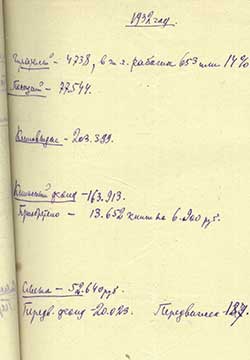 1932 год.
Читатель - 4738, в т.ч. рабочих 653 или 14%
Посещий - 77544.
Книговыдач - 203.389.
Книжный фонд - 163.913.
Приобретено - 13.652 книг на 6.900 руб.
Смета - 52.640 руб.
Передв. фонд - 20.023. Передвижек 187.